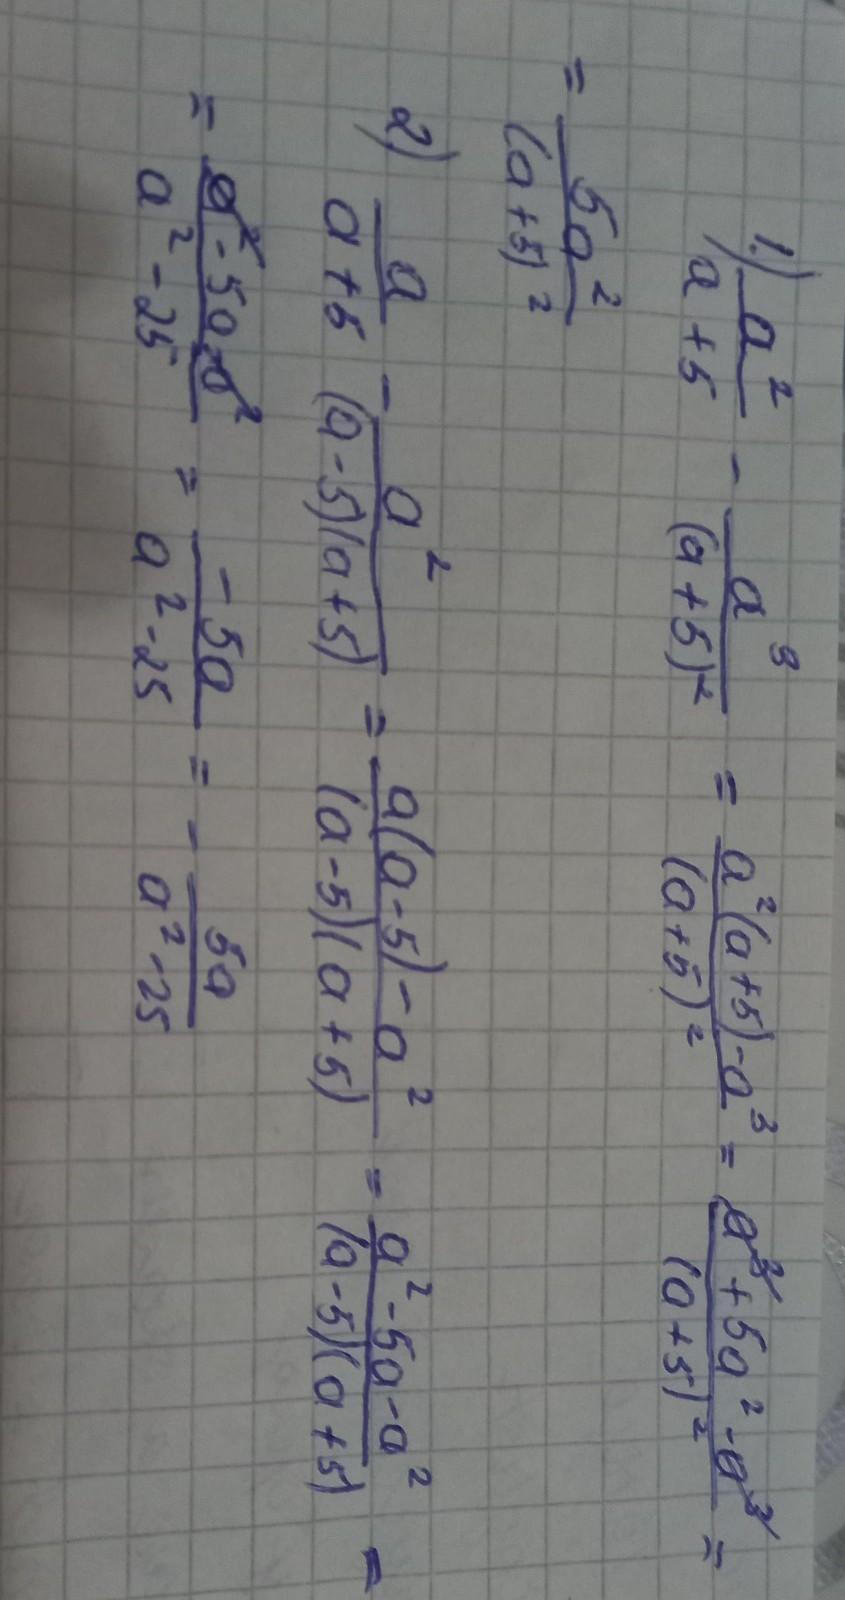 1.) a²/(a+5) - a³/(a+5)² = (a²(a+5)-a³)/(a+5)² = (a³+5a²-a³)/(a+5)² =
= 5a²/(a+5)²
2) a/(a+5) - a²/((a-5)(a+5)) = (a(a-5)-a²)/((a-5)(a+5)) = (a²-5a-a²)/((a-5)(a+5)) =
= (a²-5a-a²)/(a²-25) = (-5a)/(a²-25) = - 5a/(a²-25)